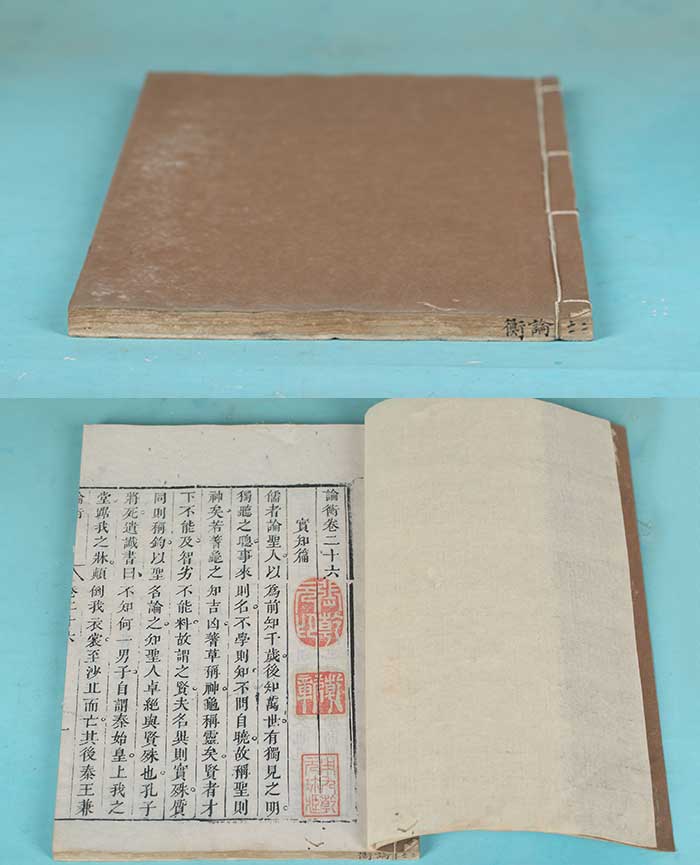 論衡
論衡卷二十六
實知篇
儒者論聖人以爲前知千歲後知萬世有獨見之明
獨聽之聰事來則名不學則知不問自曉故稱聖則
神矣若蓍龜之知吉凶蓍草稱神龜稱靈矣賢者才
下不能及智劣不能料故謂之賢夫名異則實殊質
同則稱鈞以聖名論之知聖人卓絕與賢殊也孔子
將死遺讖書曰不知何一男子自謂秦始皇上我之
堂踞我之牀顛倒我衣裳至沙丘而亡其後秦王兼